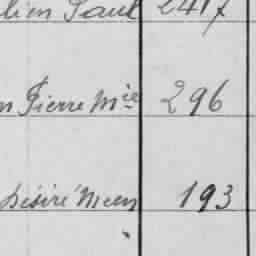 lien Paul 2417
n Pierre Mie 296
Désiré Meen 193